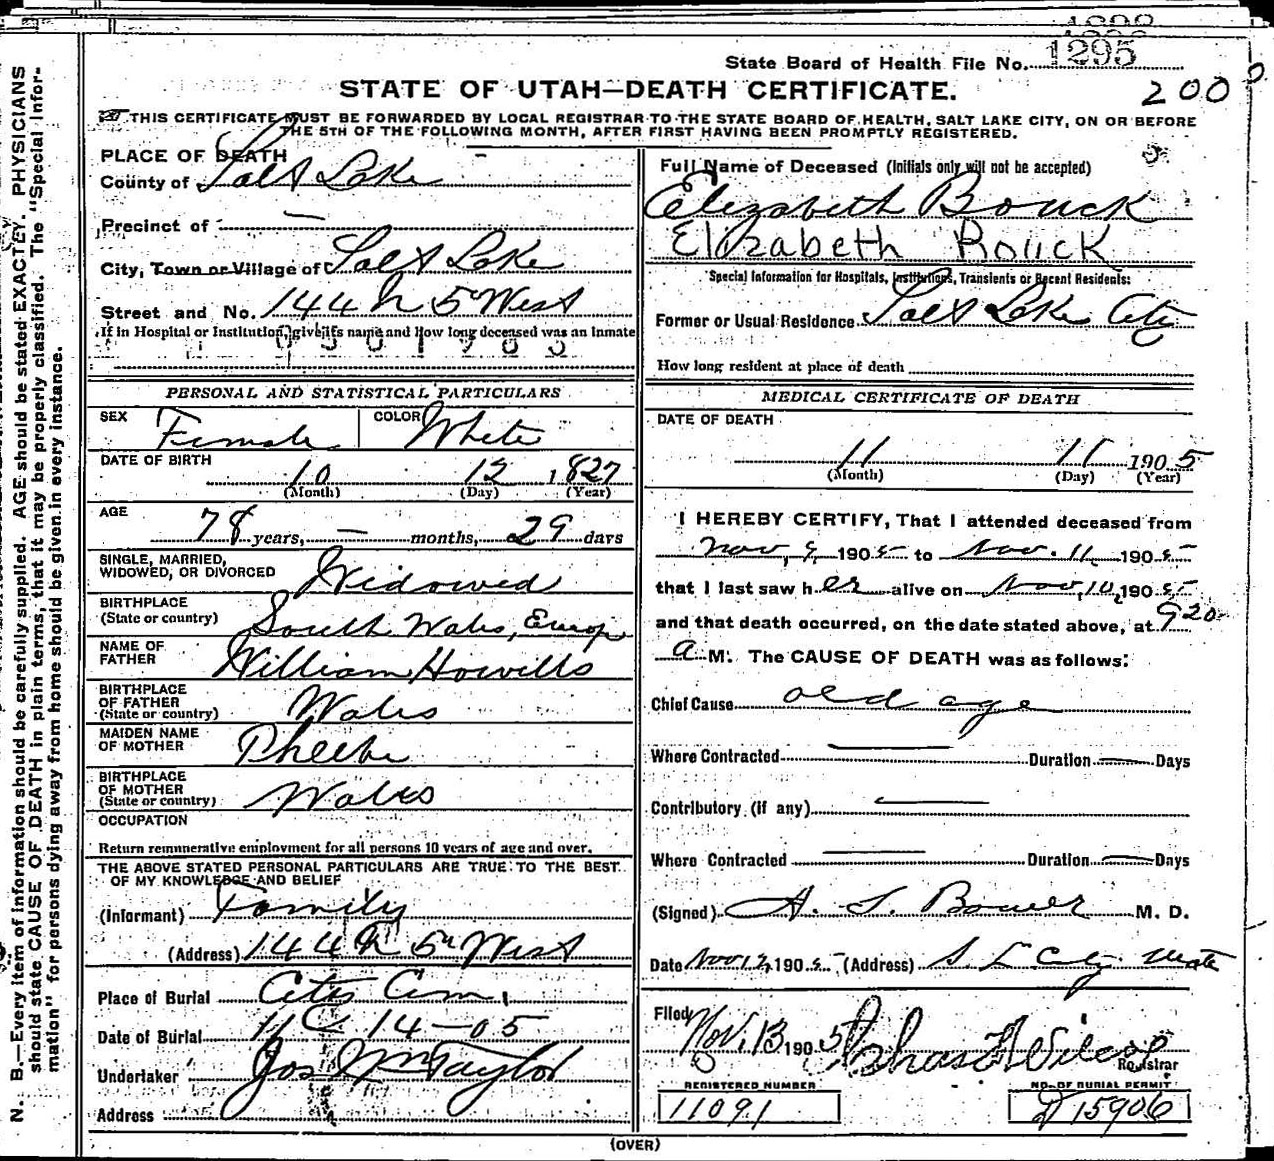 1295
State Board of Health File No.
2000
STATE OF UTAH—DEATH CERTIFICATE.
THIS CERTIFICATE MUST BE FORWARDED BY LOCAL REGISTRAR TO THE STATE BOARD OF HEALTH, SALT LAKE CITY, ON OR BEFORE
THE 5TH OF THE FOLLOWING MONTH, AFTER FIRST HAVING BEEN PROMPTLY REGISTERED.
PLACE OF DEATH
County of Salt Lake
Precinct of —
City, Town or Village of Salt Lake
Street and No. 144 N 5 West
If in Hospital or Institution, give its name and how long deceased was an inmate
PERSONAL AND STATISTICAL PARTICULARS
SEX Female COLOR White
DATE OF BIRTH
10 12 1827
(Month) (Day) (Year)
AGE
78 years, — months, 29 days
SINGLE, MARRIED,
WIDOWED, OR DIVORCED Widowed
BIRTHPLACE
(State or country) South Wales, Europ
NAME OF
FATHER William Howills
BIRTHPLACE
OF FATHER
(State or country) Wales
MAIDEN NAME
OF MOTHER Pheebe
BIRTHPLACE
OF MOTHER
(State or country) Wales
OCCUPATION
Return remunerative employment for all persons 10 years of age and over.
THE ABOVE STATED PERSONAL PARTICULARS ARE TRUE TO THE BEST
OF MY KNOWLEDGE AND BELIEF
(Informant) Family
(Address) 144 N 5" West
Place of Burial City Cem.
Date of Burial 11 14-05
Undertaker Jos Wm Taylor
Address
Full Name of Deceased (Initials only will not be accepted)
Elizabeth Bouck
Elizabeth Rouck
Special Information for Hospitals, Institutions, Transients or Recent Residents:
Former or Usual Residence Salt Lake City
How long resident at place of death
MEDICAL CERTIFICATE OF DEATH
DATE OF DEATH
11 11 1905
(Month) (Day) (Year)
I HEREBY CERTIFY, That I attended deceased from
Nov, 9, 1905 to Nov. 11, 1905
that I last saw her alive on Nov, 10, 1905
and that death occurred, on the date stated above, at 9 20
a M. The CAUSE OF DEATH was as follows:
Chief Cause old age
Where Contracted — Duration — Days
Contributory (if any) —
Where Contracted — Duration — Days
(Signed) A. S. Bower M. D.
Date Nov 12, 1905 (Address) S. L City Utah
Filed
Nov. 13 1905 Chas F Wilcox
Registrar
REGISTERED NUMBER
11091
NO. OF BURIAL PERMIT
D 15906
(OVER)
N. B.—Every item of information should be carefully supplied. AGE should be stated EXACTLY. PHYSICIANS
should state CAUSE OF DEATH in plain terms, that it may be properly classified. The "Special Infor-
mation" for persons dying away from home should be given in every instance.